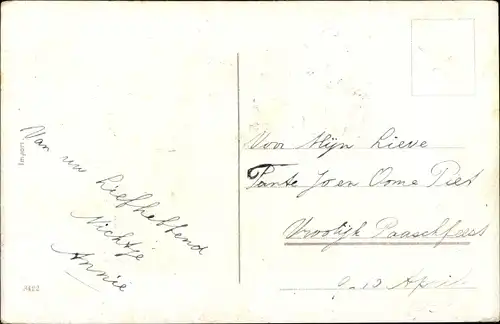 Import
Van uw Liefhebbend
Nichtje
Annie
Voor Mijn Lieve
Tante Jo en Oome Piet
Vroolijk Paaschfeest
9-10 April
3422